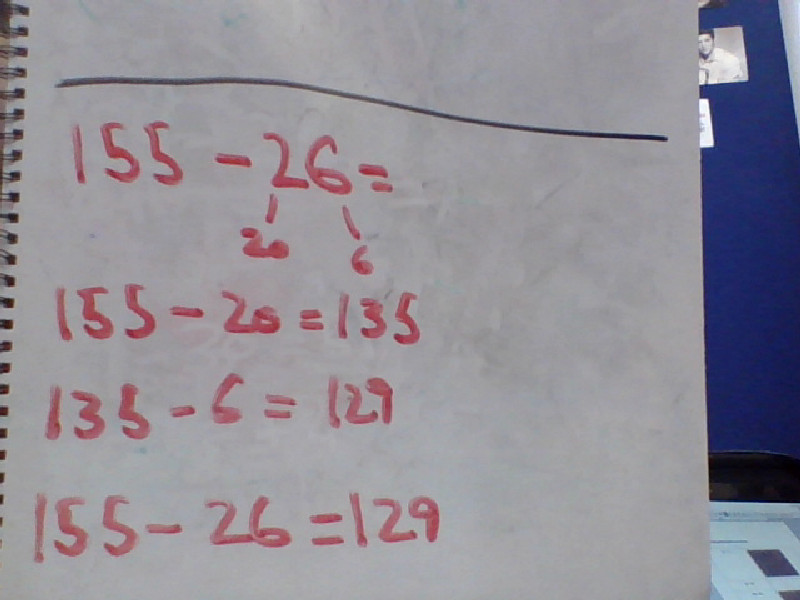 155 - 26 =
20 6
155 - 20 = 135
135 - 6 = 129
155 - 26 = 129